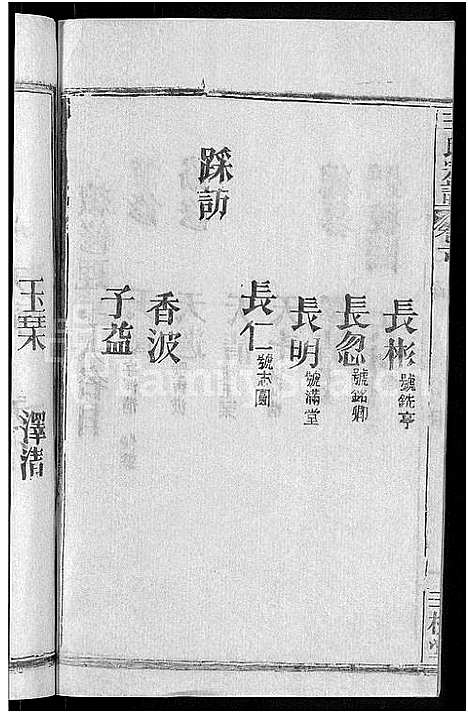 王氏宗譜
長彬 號銑亭
長忽 號銘卿
長明 號滿堂
長仁 號志團
踩訪
香波
子益
玉琹
澤清